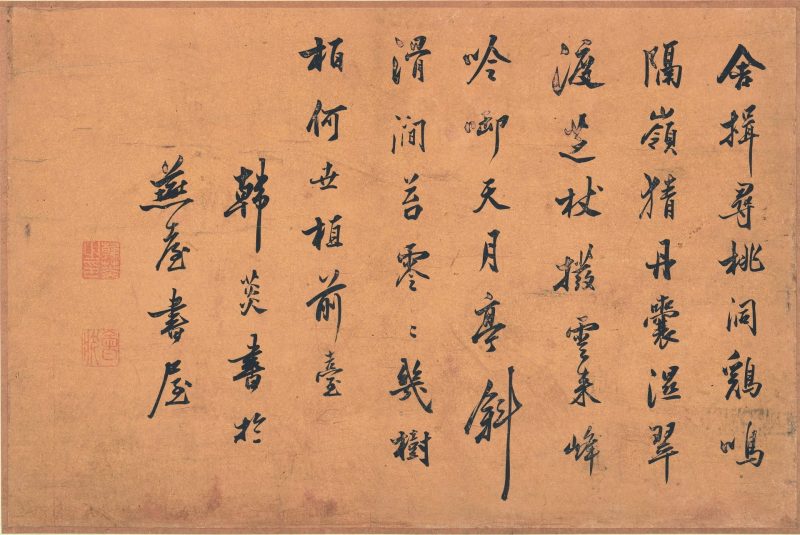 舍揖尋桃洞鷄鳴
隔嶺猜丹囊濕翠
渡芝杖撥雲來峰
吟啣天月亭斜
滑澗苔零〻幾樹
柏何世植前臺
韓菼書於
燕臺書屋